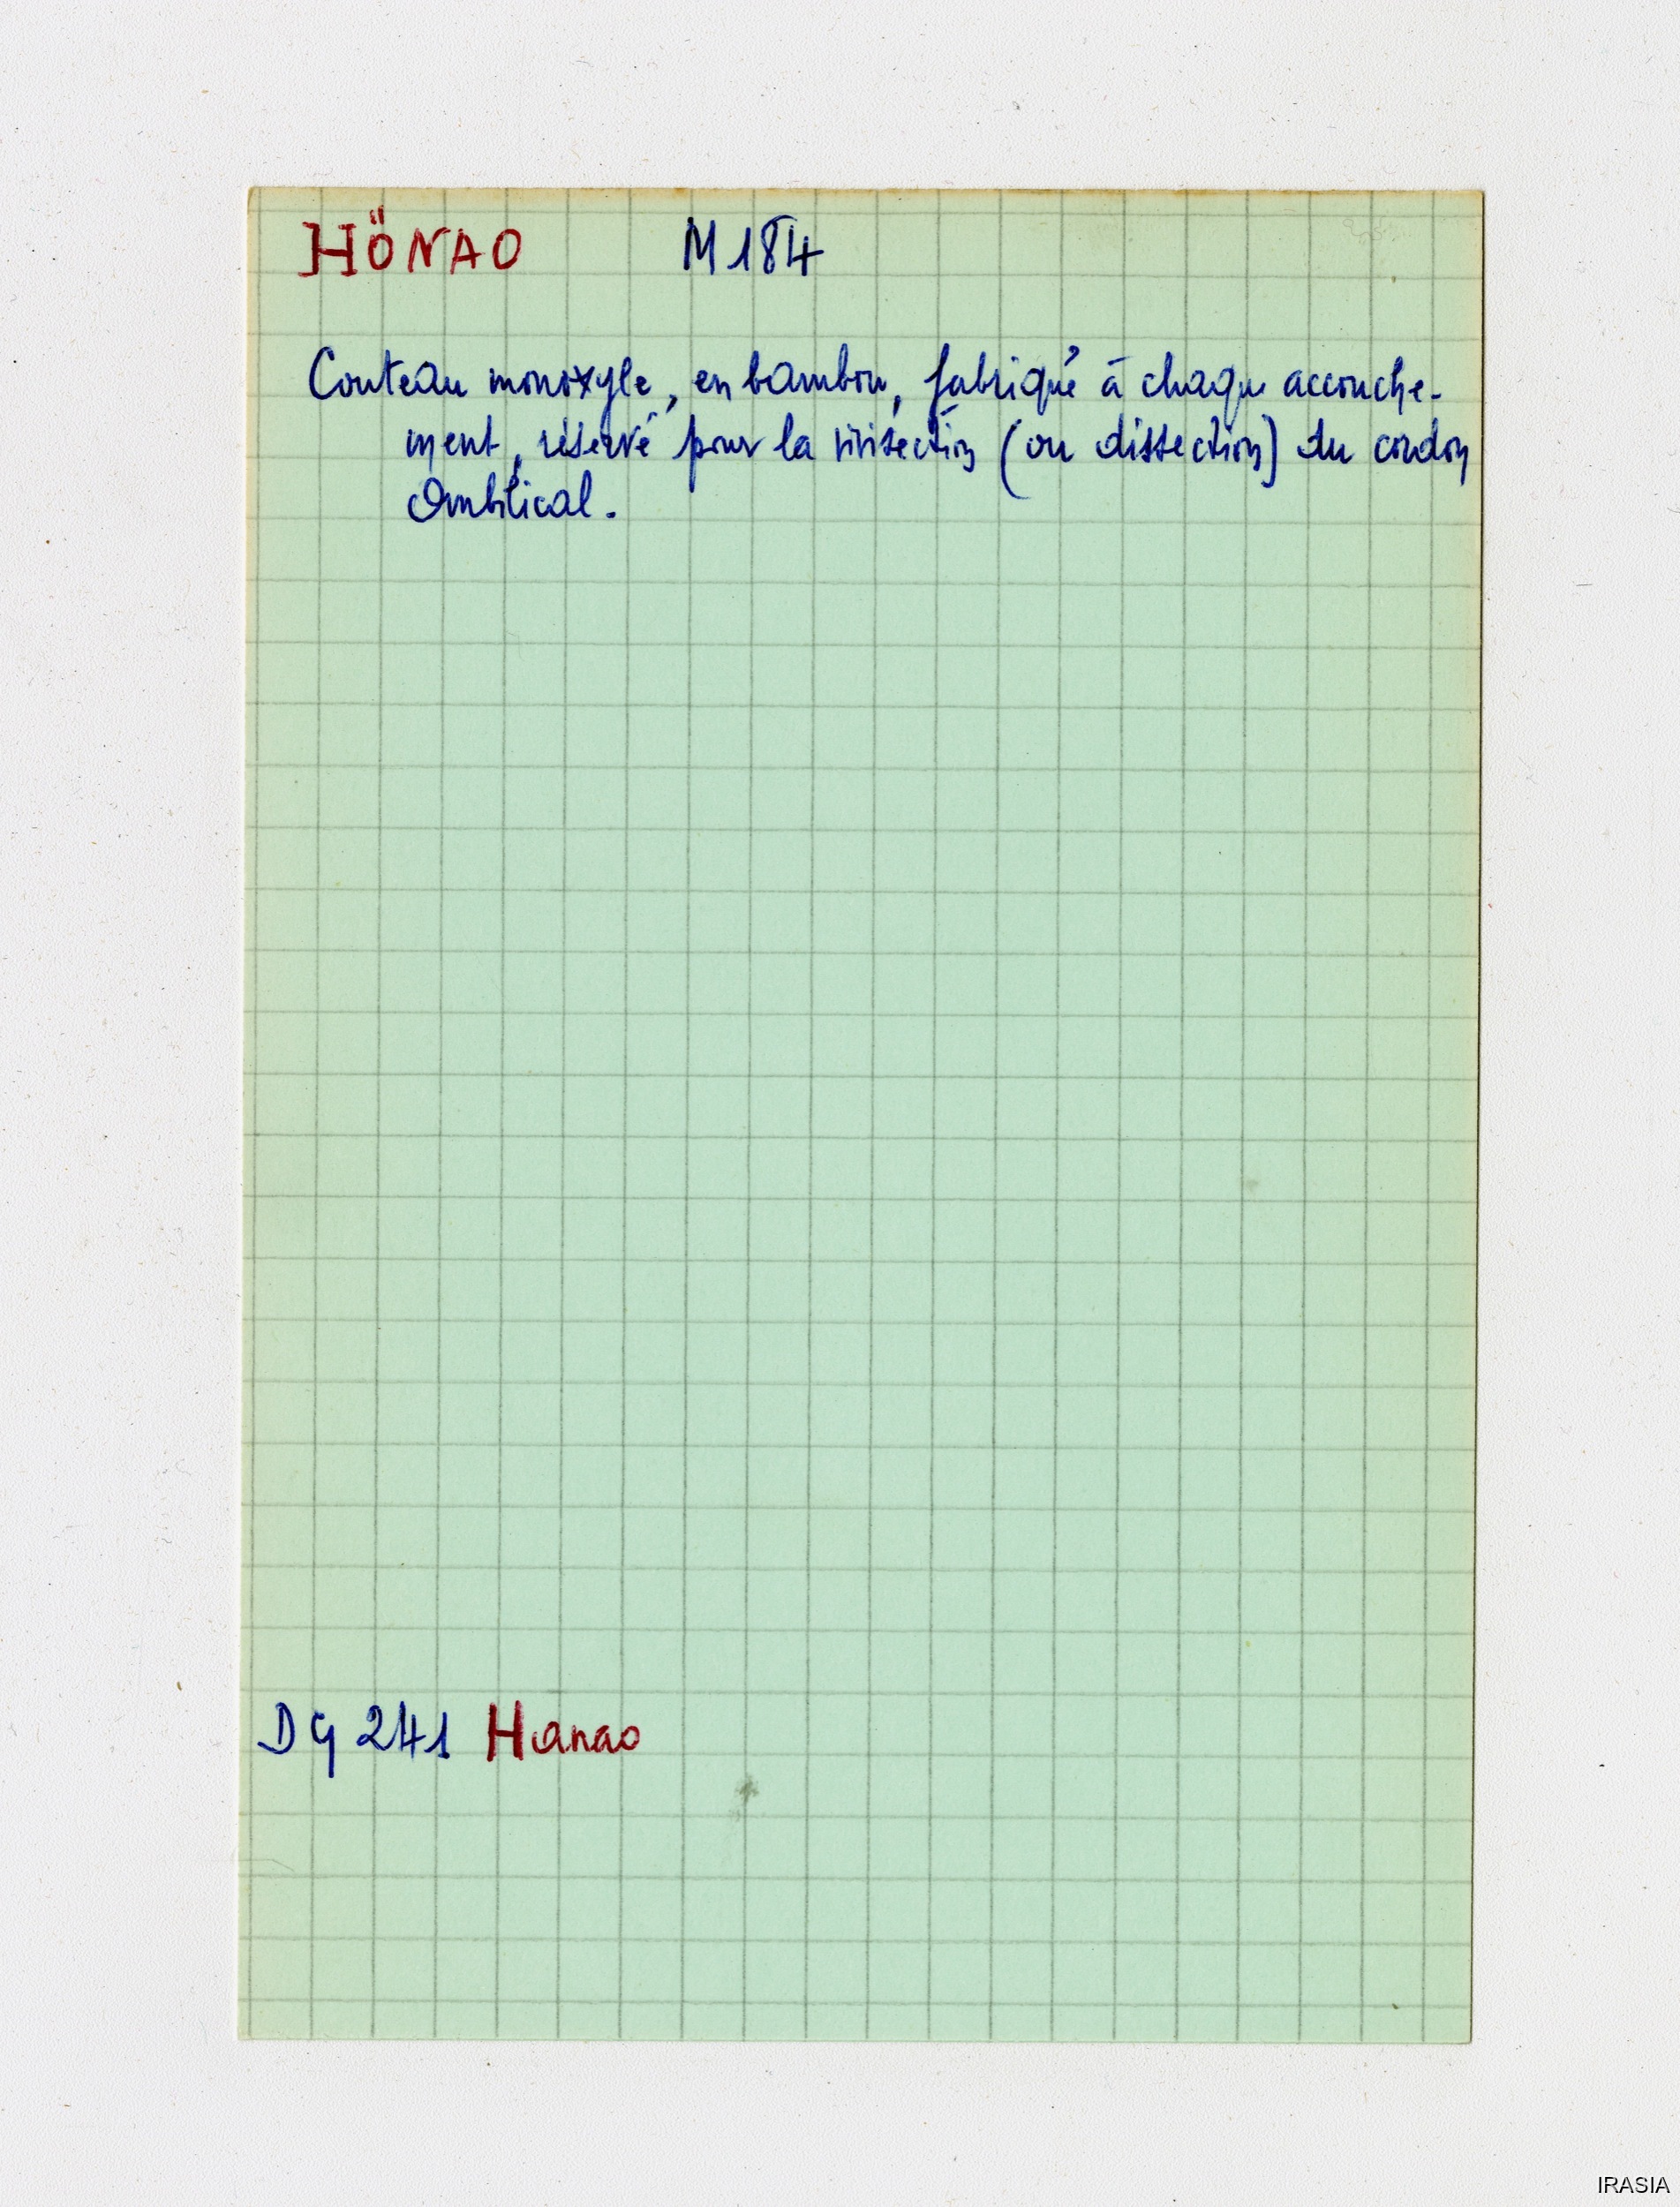 HÖNAO M184
Couteau monoxyle, en bambou, fabriqué à chaque accouche-
ment, réservé pour la vivisection (ou dissection) du cordon
Ombilical.
DG 241 Hanao
IRASIA